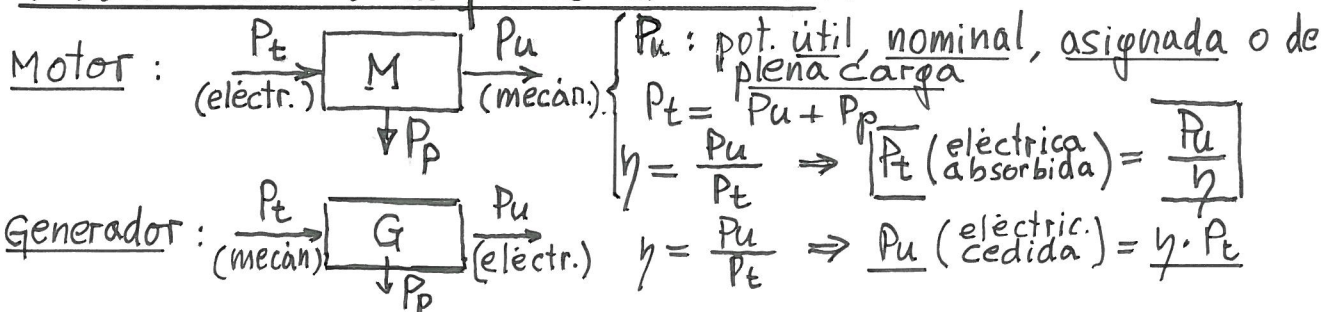 Motor :
Pt
(eléctr.)
M
Pu
(mecán.)
Pp
Pu : pot. útil, nominal, asignada o de
plena carga
Pt = Pu + Pp
η = Pu / Pt ⇒ Pt (eléctrica absorbida) = Pu / η
Generador :
Pt
(mecán)
G
Pu
(eléctr.)
Pp
η = Pu / Pt ⇒ Pu (eléctric. cedida) = η · Pt